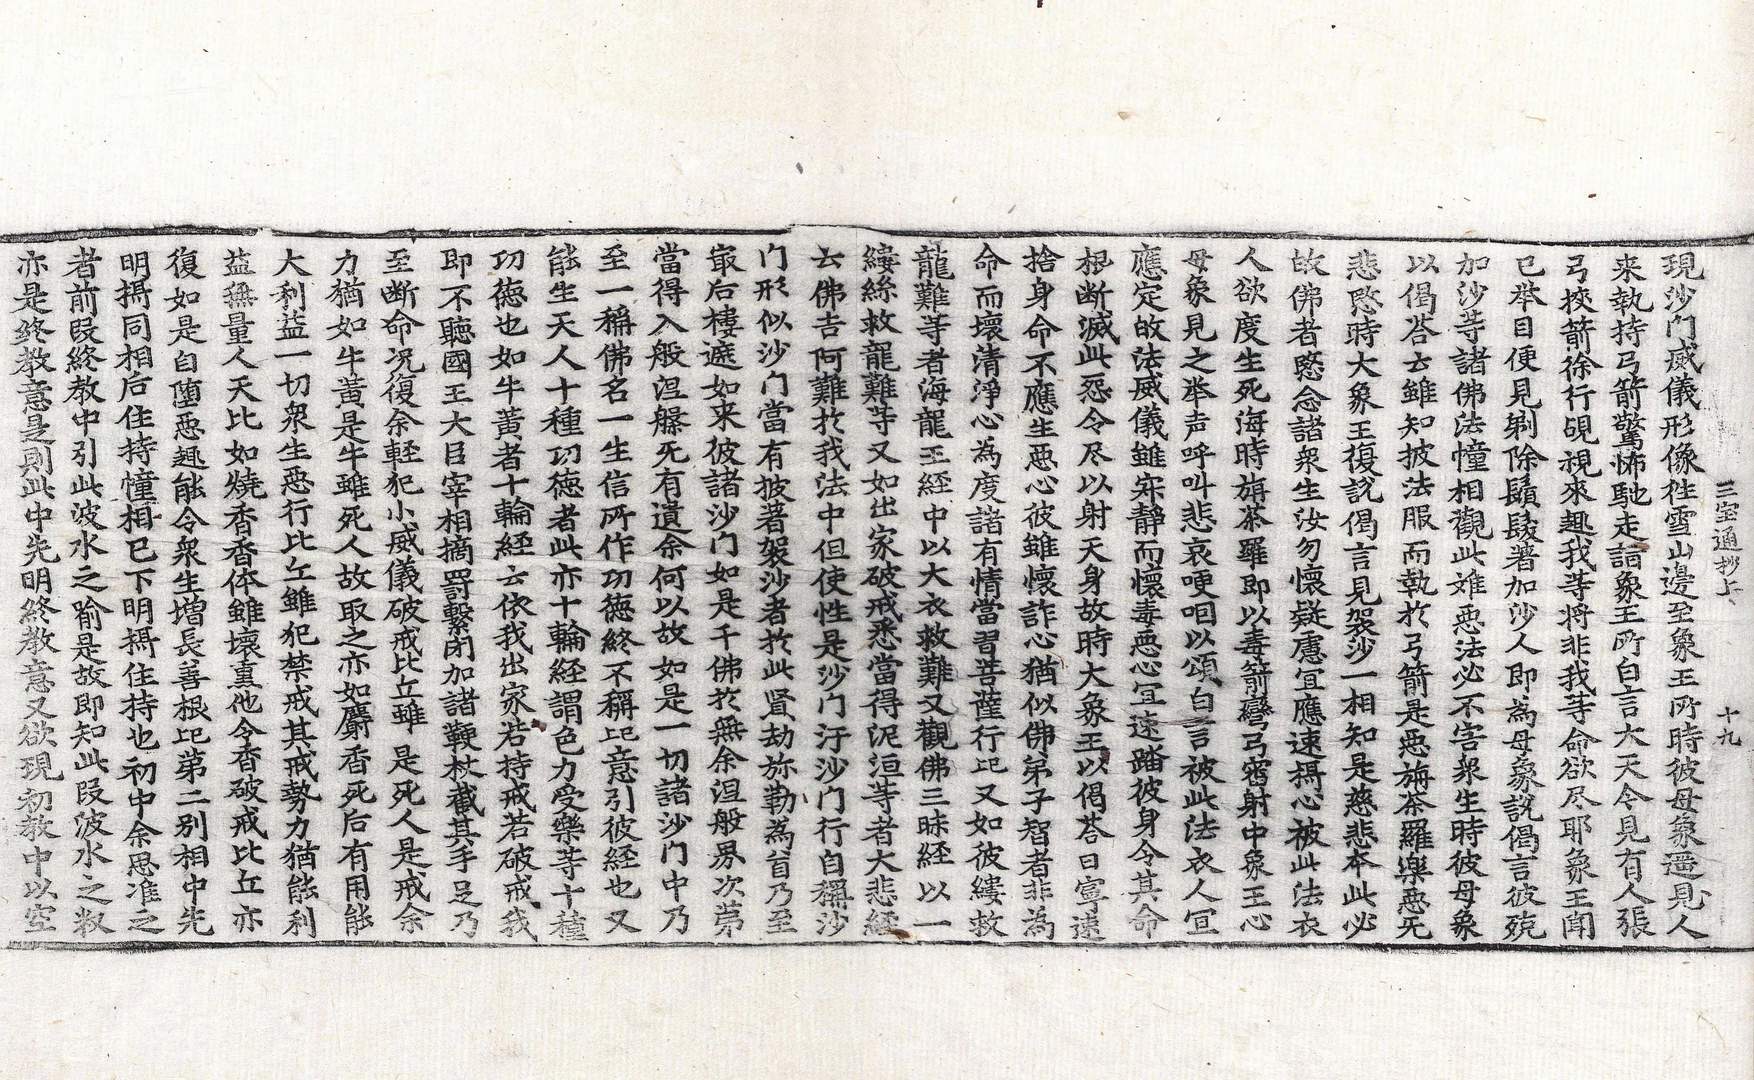 三室通抄上　十九
現沙门威儀形像徃雪山邊至象王所時彼母象還見人
来執持弓箭驚怖馳走詣象王所白言大天今見有人張
弓挾箭徐行覘視來趣我等将非我等命欲尽耶象王聞
已举目便見剃除鬚髮著加沙人即為母象說偈言彼殑
加沙等諸佛法幢相觀此雖悪法必不害衆生時彼母象
以偈荅云雖知披法服而執於弓箭是悪旃荼羅樂悪死
悲愍時大象王復說偈言見袈沙一相知是慈悲本此必
故佛者愍念諸衆生汝勿懷疑慮宜應速攝心被此法衣
人欲度生死海時旃荼羅即以毒箭彎弓宻射中象王心
母象見之举声呼叫悲哀哽咽以頌白言被此法衣人冝
應定故法威儀雖寂静而懷毒悪心冝速踏彼身令其命
根断滅此怨令尽以射天身故時大象王以偈荅曰寧遂
捨身命不應生悪心彼雖懷詐心猶似佛弟子智者非為
命而壞清淨心為度諸有情當習菩薩行已又如彼縷救
龍難等者海龍王経中以大衣救難又觀佛三昧経以一
縷絲救龍難等又如出家破戒悉當得泥洹等者大悲経
云佛告阿難於我法中但使性是沙门汙沙门行自稱沙
门形似沙门當有披著袈沙者於此贤劫弥勒為首乃至
㝡后樓遮如来彼諸沙门如是千佛於無余涅般界次第
當得入般涅槃死有遺余何以故如是一切諸沙门中乃
至一稱佛名一生信所作功徳終不稱已意引彼経也又
能生天人十種功徳者此亦十輪経謂色力受樂等十種
功徳也如牛黃者十輪経云依我出家若持戒若破戒我
即不聽國王大臣宰相摘罰繫閉加諸鞭杖截其手足乃
至断命况復余輕犯小威儀破戒比丘雖是死人是戒余
力猶如牛黃是牛雖死人故取之亦如麝香死后有用能
大利益一切衆生悪行比丘雖犯禁戒其戒勢力猶能利
益無量人天比如燒香香体雖壞熏他令香破戒比丘亦
復如是自堕悪趣能令衆生增長善根已第二別相中先
明攝同相后住持憧相已下明攝住持也初中余思准之
者前段終教中引此波水之喻是故即知此段波水之教
亦是終教意是則此中先明終教意又欲現初教中以空